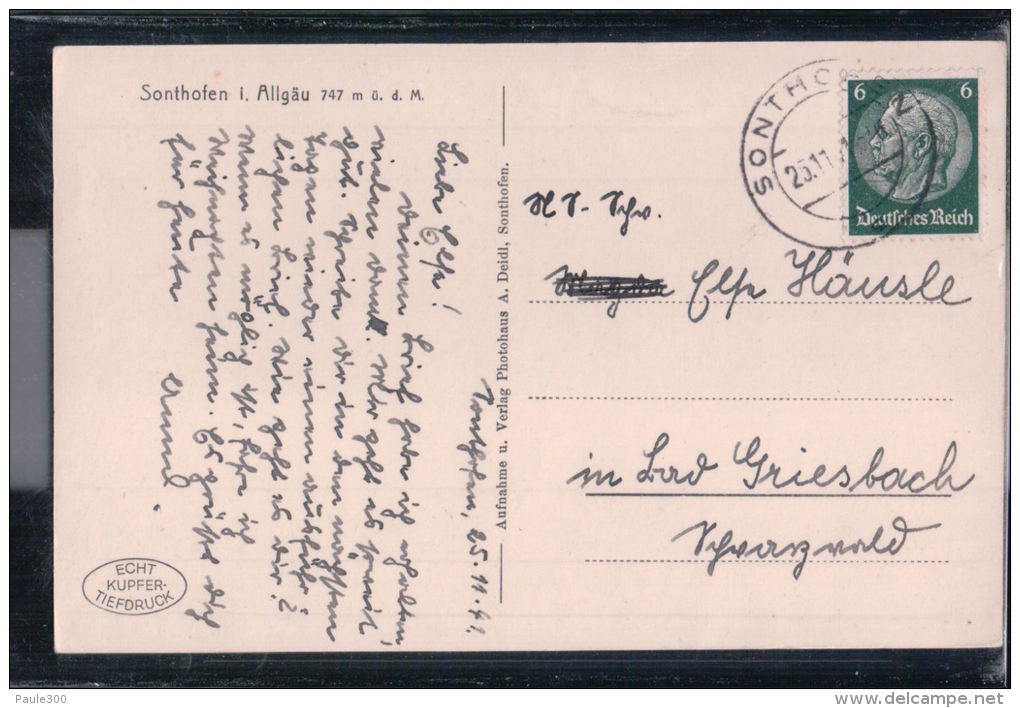 Sonthofen i. Allgäu 747 m ü. d. M.
Sonthofen, 25.11.41.
Liebe Else!
Deinen Brief habe ich erhalten,
vielen Dank. Mir geht es soweit
gut. Schreibe Dir in den nächsten
Tagen wieder einen ausführ=
lichen Brief. Wie geht es Dir?
Wenn es möglich ist, fahre ich
Weihnachten heim. Es grüßt Dich
für heute
ECHT
KUPFER-
TIEFDRUCK
Aufnahme u. Verlag Photohaus A. Deidl, Sonthofen.
SONTHOFEN
25.11.41
2
6 6
Deutsches Reich
Else Häusle
in Bad Griesbach
Schwarzwald
Paule300
www.delcampe.net